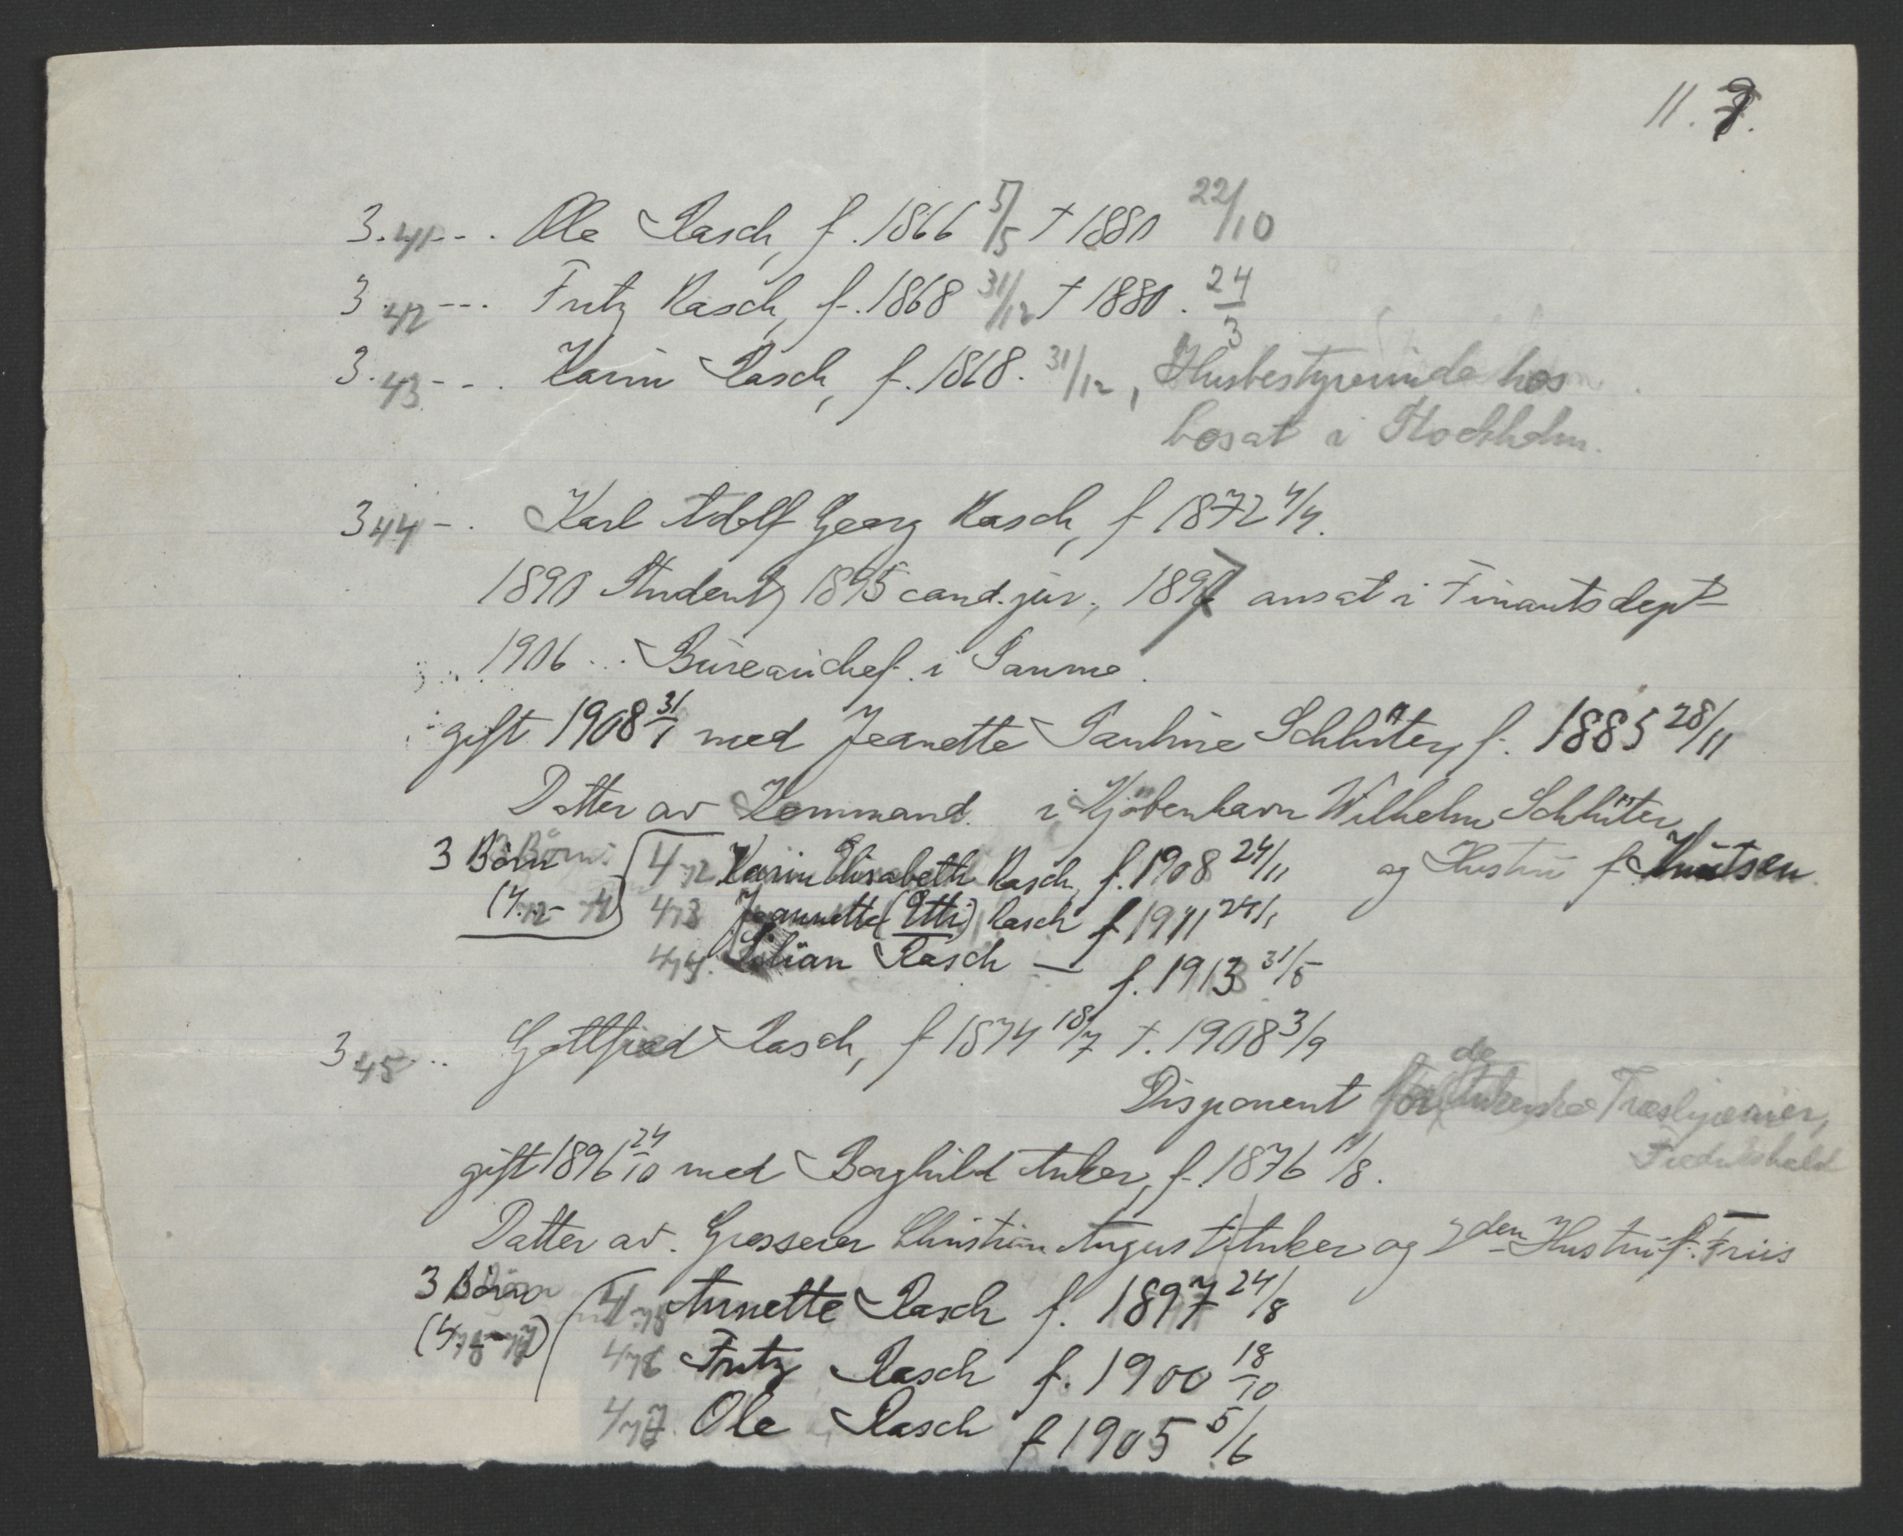 11. 9.
3.41 - - . Ole Rasch, f. 1866 5/5 † 1880 22/10
3 42 - - - . Fritz Rasch, f. 1868 31/12 † 1880. 24/3
3. 43 - - . Karin Rasch, f. 1868. 31/12, Husbestyrerinde hos
bosat i Stockholm.
3 44 - . Karl Adolf Georg Rasch, f 1872 4/4.
1890 Student, 1895 cand. jur., 1897 ansat i Finantsdept
1906 ... Bureauchef i Samme.
gift 1908 31/1 med Jeanette Pauline Schlüter, f. 1885 28/11
Datter av Kommand. i Kjöbenhavn Wilhelm Schlüter
og Hustru f. Knutsen.
3 Börn ( 4 72 Karin Elisabeth Rasch, f. 1908 24/11
(4. 72 - 74) 473 Jeannette (Etti) Rasch f 1911 24/1
474. Lilian Rasch — f. 1913 31/5
3 45 ... Gottfried Rasch, f 1874 18/7 †. 1908 3/9
Disponent for de Ankerske Træsliperier,
Fredrikshald
gift 1896 24/10 med Borghild Anker, f. 1876 11/8.
Datter av. Grosserer Christian August Anker og 2den Hustru f. Friis
3 Börn ( 4 75 Annette Rasch f. 1897 24/8
(4 75 - 77) 476 Fritz Rasch f. 1900 18/10
4 77. Ole Rasch f 1905 5/6